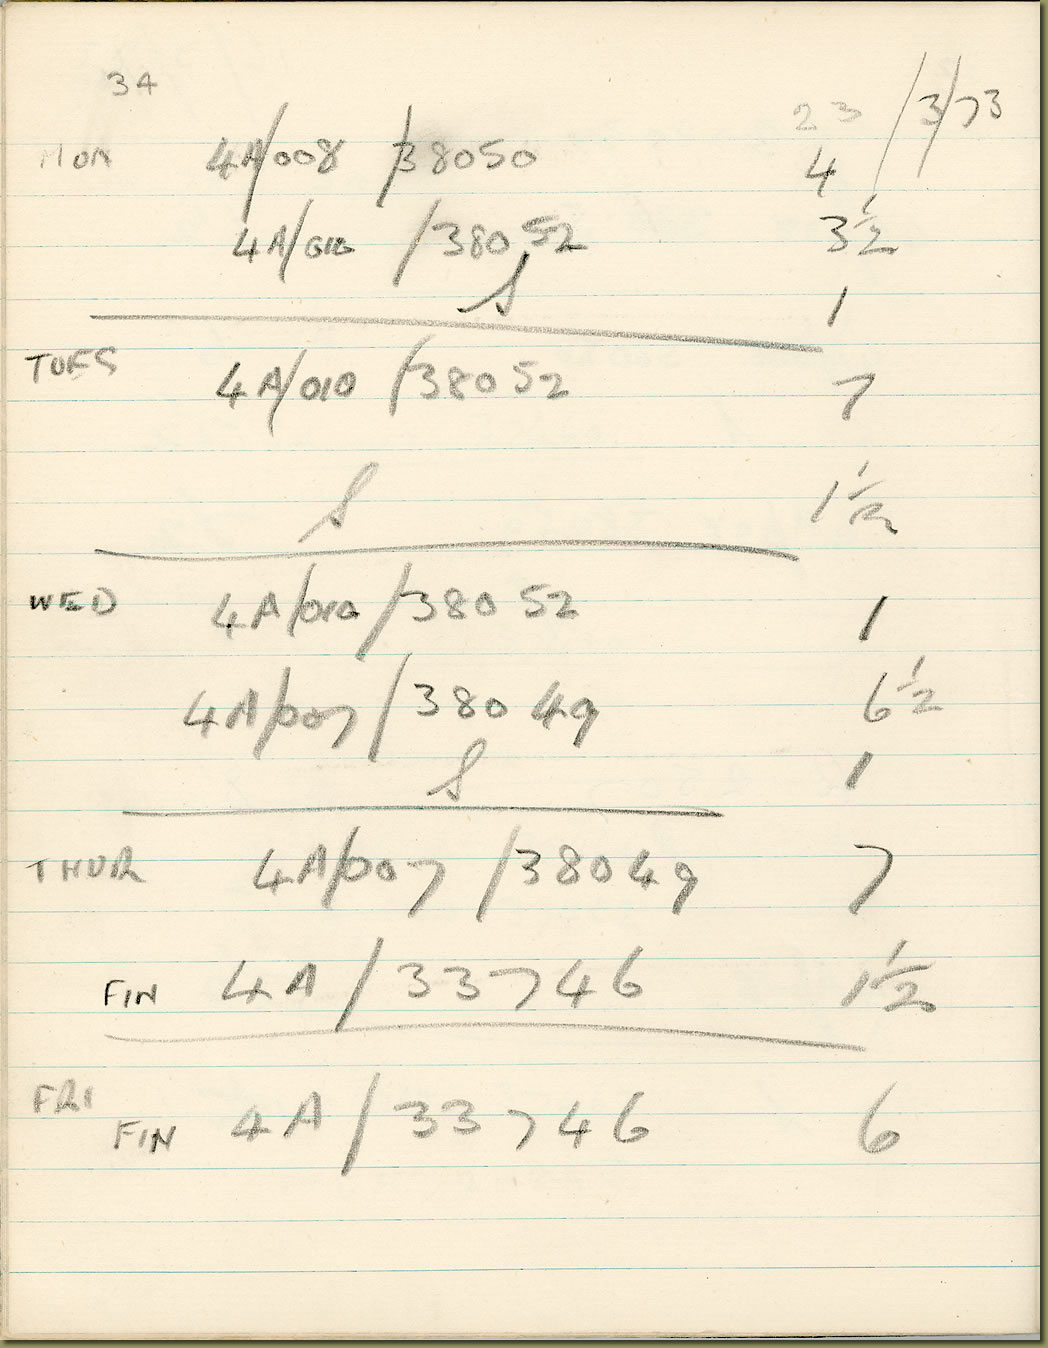 34
23/3/73
MON 4A/008 /38050 4
4A/010 /38052 3½
S 1
TUES 4A/010 /38052 7
S 1½
WED 4A/010 /38052 1
4A/007 /38049 6½
S 1
THUR 4A/007 /38049 7
FIN 4A/33746 1½
FRI
FIN 4A/33746 6